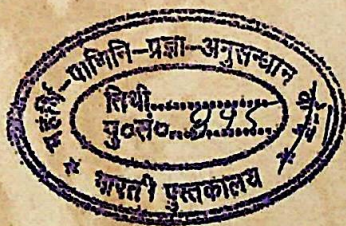 महर्षि-पाणिनि-प्रज्ञा-अनुसन्धान
तिथी..........
पु०सं०....
★ भारती पुस्तकालय ★